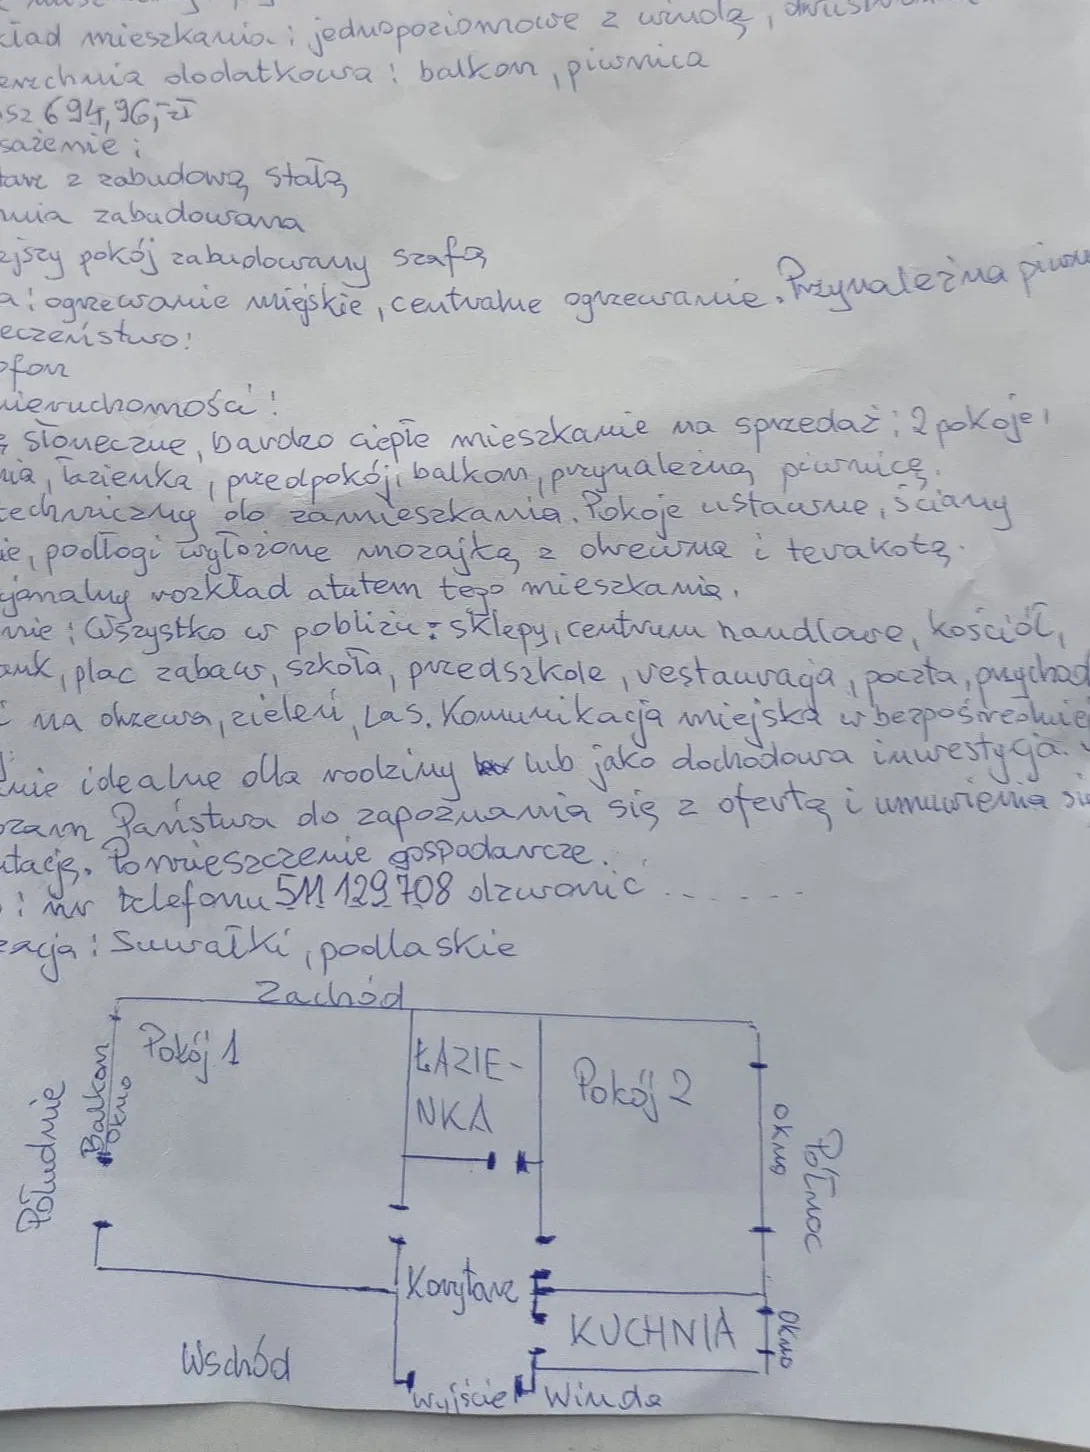 kład mieszkania: jednopoziomowe z windą,
erzchnia dodatkowa: balkon, piwnica
sz 694,96,-zł
sażenie:
tarz z zabudową stałą
nia zabudowana
ejszy pokój zabudowany szafą
a: ogrzewanie miejskie, centralne ogrzewanie. Przynależna piwn
eczeństwo:
ofon
nieruchomości:
słoneczne, bardzo ciepłe mieszkanie na sprzedaż; 2 pokoje,
nia, łazienka, przedpokój, balkon, przynależną piwnicę.
techniczny do zamieszkania. Pokoje ustawne, ściany
ie, podłogi wyłożone mozajką z drewna i terakotą.
cjonalny rozkład atutem tego mieszkania.
nie: Wszystko w pobliżu: sklepy, centrum handlowe, kościół,
ank, plac zabaw, szkoła, przedszkole, restauracja, poczta, przychod
na drzewa, zieleń, las. Komunikacja miejska w bezpośrednie
nie idealne dla rodziny lub jako dochodowa inwestycja.
szam Państwa do zapoznania się z ofertą i umówienia się
ntację. Pomieszczenie gospodarcze.
: nr telefonu 511 129 708 dzwonić .......
zacja: Suwałki, podlaskie
Zachód
Pokój 1
ŁAZIE-
NKA
Pokój 2
Południe
Balkon
okno
okno
Północ
Korytarz
KUCHNIA
okno
Wschód
Wyjście
Winda